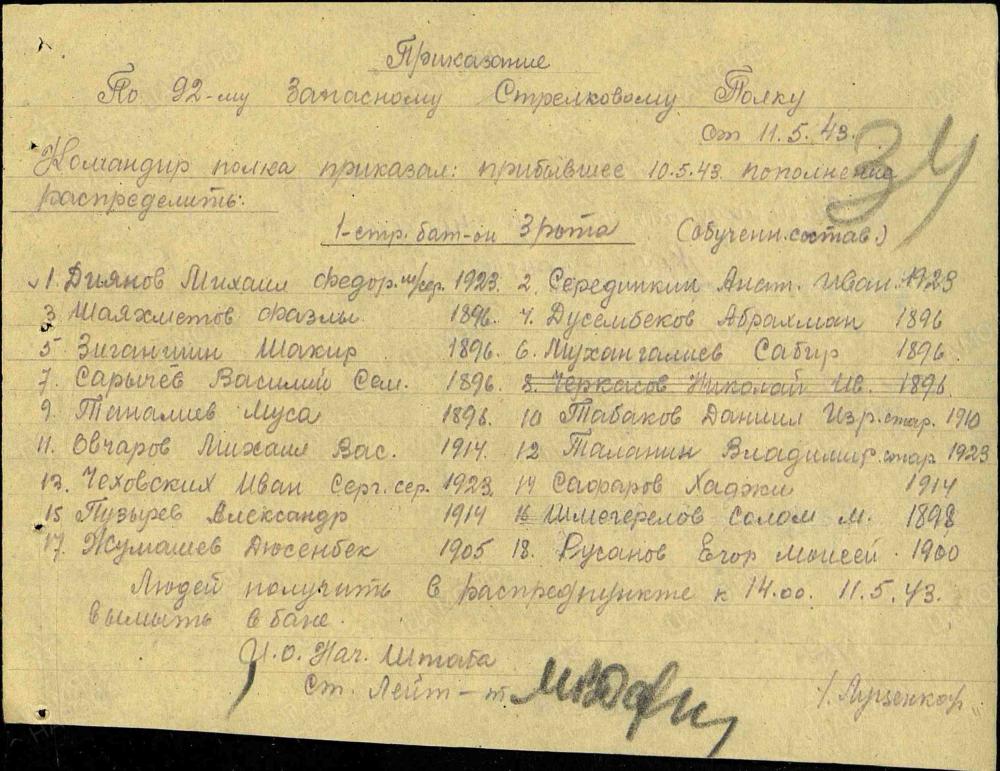 Приказание
По 92-му Запасному Стрелковому Полку
от 11.5.43.
34
Командир полка приказал: прибывшее 10.5.43. пополнение
распределить:
1-стр. бат-он 3 рота (обученн. состав.)
1. Дьянов Михаил Федор. м/сер. 1923. 2. Серединкин Анат. Иван. 1923
3 Шаяхметов Фазлы 1896. 4. Дусембеков Абрахман 1896
5 Зиганшин Шакир 1896. 6. Мухангалиев Сабир 1896.
7. Сарычёв Василий Сем. 1896. 8. Черкасов Николай Ив. 1896
9. Таналиев Муса 1896. 10 Табаков Даниил Изр. стар. 1910
11. Овчаров Михаил Вас. 1914. 12 Таланин Владимир. стар. 1923
13. Чеховских Иван Серг. сер. 1923. 14 Сафаров Хаджи 1914
15 Пузырев Александр 1914 16 Шмегерелов Солом М. 1898
17. Жумашев Дюсенбек 1905 18. Русанов Егор Моисей. 1900
Людей получить в распредпункте к 14.00. 11.5.43.
вымыть в бане.
И.О. Нач. Штаба
Ст. Лейт-т